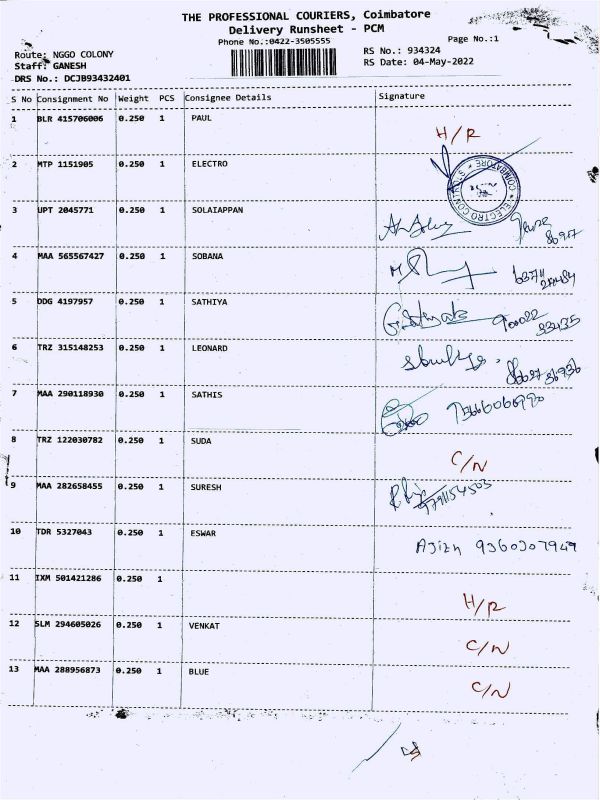 THE PROFESSIONAL COURIERS, Coimbatore
Delivery Runsheet - PCM
Phone No.:0422-3505555
Page No.:1
Route: NGGO COLONY
Staff: GANESH
DRS No.: DCJB93432401
RS No.: 934324
RS Date: 04-May-2022
S No Consignment No Weight PCS Consignee Details Signature
1 BLR 415706006 0.250 1 PAUL H/R
2 MTP 1151905 0.250 1 ELECTRO
3 UPT 2045771 0.250 1 SOLAIAPPAN
4 MAA 565567427 0.250 1 SOBANA
5 DDG 4197957 0.250 1 SATHIYA
6 TRZ 315148253 0.250 1 LEONARD
7 MAA 290118930 0.250 1 SATHIS
8 TRZ 122030782 0.250 1 SUDA C/N
9 MAA 282658455 0.250 1 SURESH 9791154503
10 TDR 5327043 0.250 1 ESWAR
11 IXM 501421286 0.250 1 H/R
12 SLM 294605026 0.250 1 VENKAT C/N
13 MAA 288956873 0.250 1 BLUE C/N